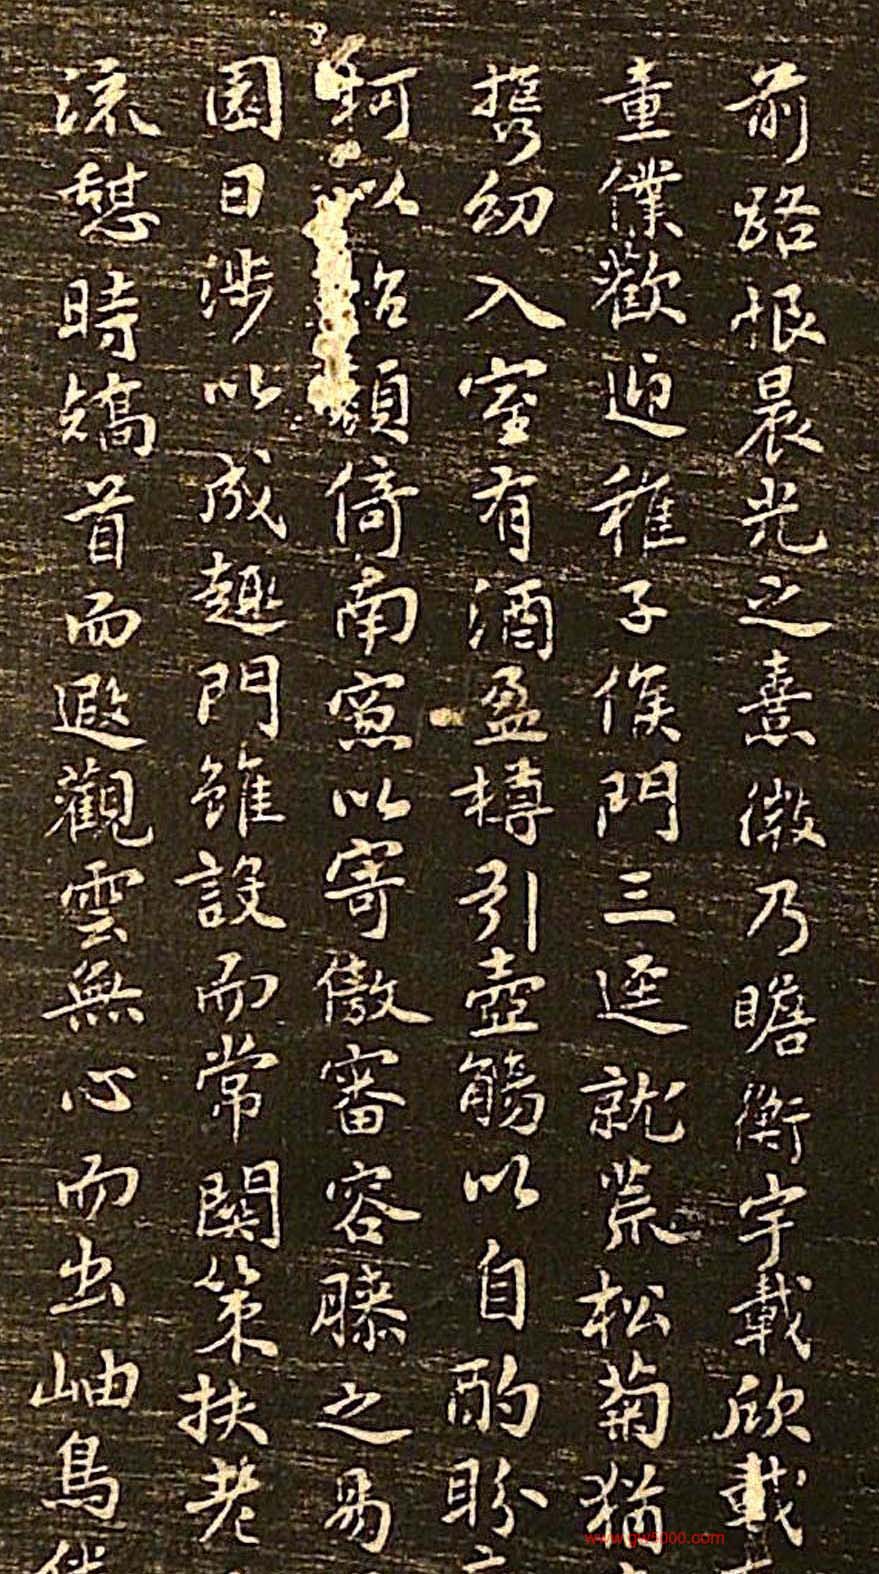 前路恨晨光之熹微乃瞻衡宇載欣載
童僕歡迎稚子候門三逕就荒松菊猶
攜幼入室有酒盈樽引壺觴以自酌盼
柯以怡顏倚南窻以寄傲審容膝之易
園日涉以成趣門雖設而常關策扶老
流憩時矯首而遐觀雲無心而出岫鳥